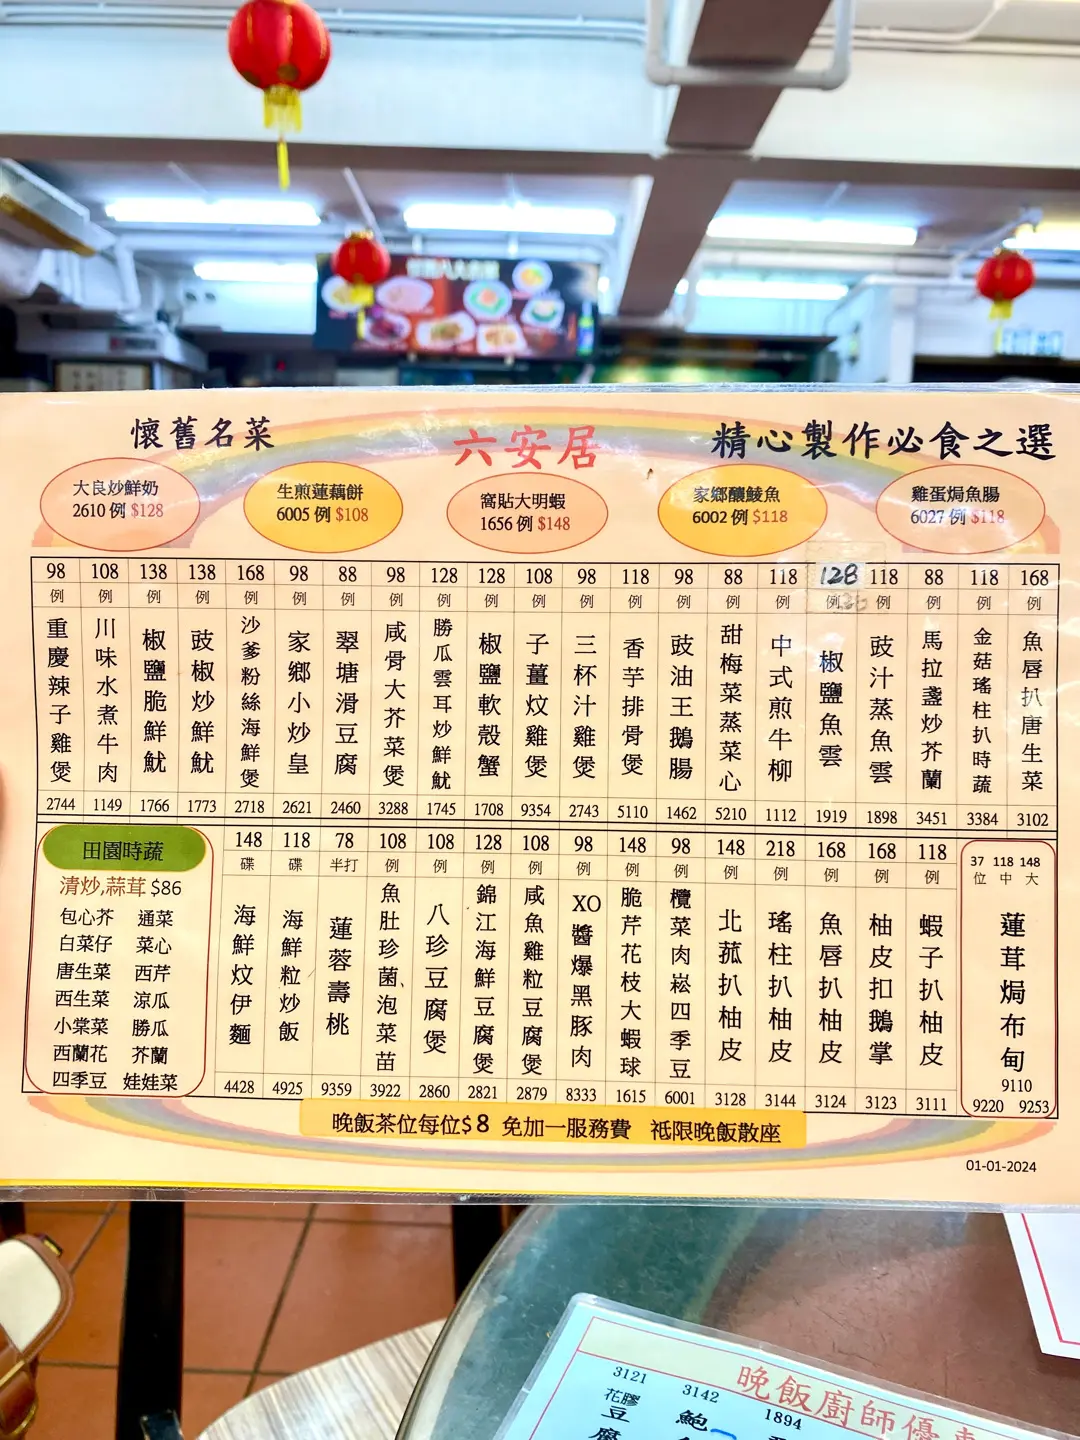 懷舊名菜
六安居
精心製作必食之選
大良炒鮮奶
2610 例 $128
生煎蓮藕餅
6005 例 $108
窩貼大明蝦
1656 例 $148
家鄉釀鯪魚
6002 例 $118
雞蛋焗魚腸
6027 例 $118
98 例 重慶辣子雞煲 2744
108 例 川味水煮牛肉 1149
138 例 椒鹽脆鮮魷 1766
138 例 豉椒炒鮮魷 1773
168 例 沙爹粉絲海鮮煲 2718
98 例 家鄉小炒皇 2621
88 例 翠塘滑豆腐 2460
98 例 咸骨大芥菜煲 3288
128 例 勝瓜雲耳炒鮮魷 1745
128 例 椒鹽軟殼蟹 1708
108 例 子薑炆雞煲 9354
98 例 三杯汁雞煲 2743
118 例 香芋排骨煲 5110
98 例 豉油王鵝腸 1462
88 例 甜梅菜蒸菜心 5210
118 例 中式煎牛柳 1112
128 例 椒鹽魚雲 1919
118 例 豉汁蒸魚雲 1898
88 例 馬拉盞炒芥蘭 3451
118 例 金菇瑤柱扒時蔬 3384
168 例 魚唇扒唐生菜 3102
田園時蔬
清炒,蒜茸 $86
包心芥 通菜
白菜仔 菜心
唐生菜 西芹
西生菜 涼瓜
小棠菜 勝瓜
西蘭花 芥蘭
四季豆 娃娃菜
148 碟 海鮮炆伊麵 4428
118 碟 海鮮粒炒飯 4925
78 半打 蓮蓉壽桃 9359
108 例 魚肚珍菌、泡菜苗 3922
108 例 八珍豆腐煲 2860
128 例 錦江海鮮豆腐煲 2821
108 例 咸魚雞粒豆腐煲 2879
98 例 XO醬爆黑豚肉 8333
148 例 脆芹花枝大蝦球 1615
98 例 欖菜肉崧四季豆 6001
148 例 北菰扒柚皮 3128
218 例 瑤柱扒柚皮 3144
168 例 魚唇扒柚皮 3124
168 例 柚皮扣鵝掌 3123
118 例 蝦子扒柚皮 3111
37 118 148
位 中 大
蓮茸焗布甸
9110
9220 9253
晚飯茶位每位$8 免加一服務費 祗限晚飯散座
01-01-2024
晚飯廚師優
3121
花膠豆腐
3142
鮑
1894